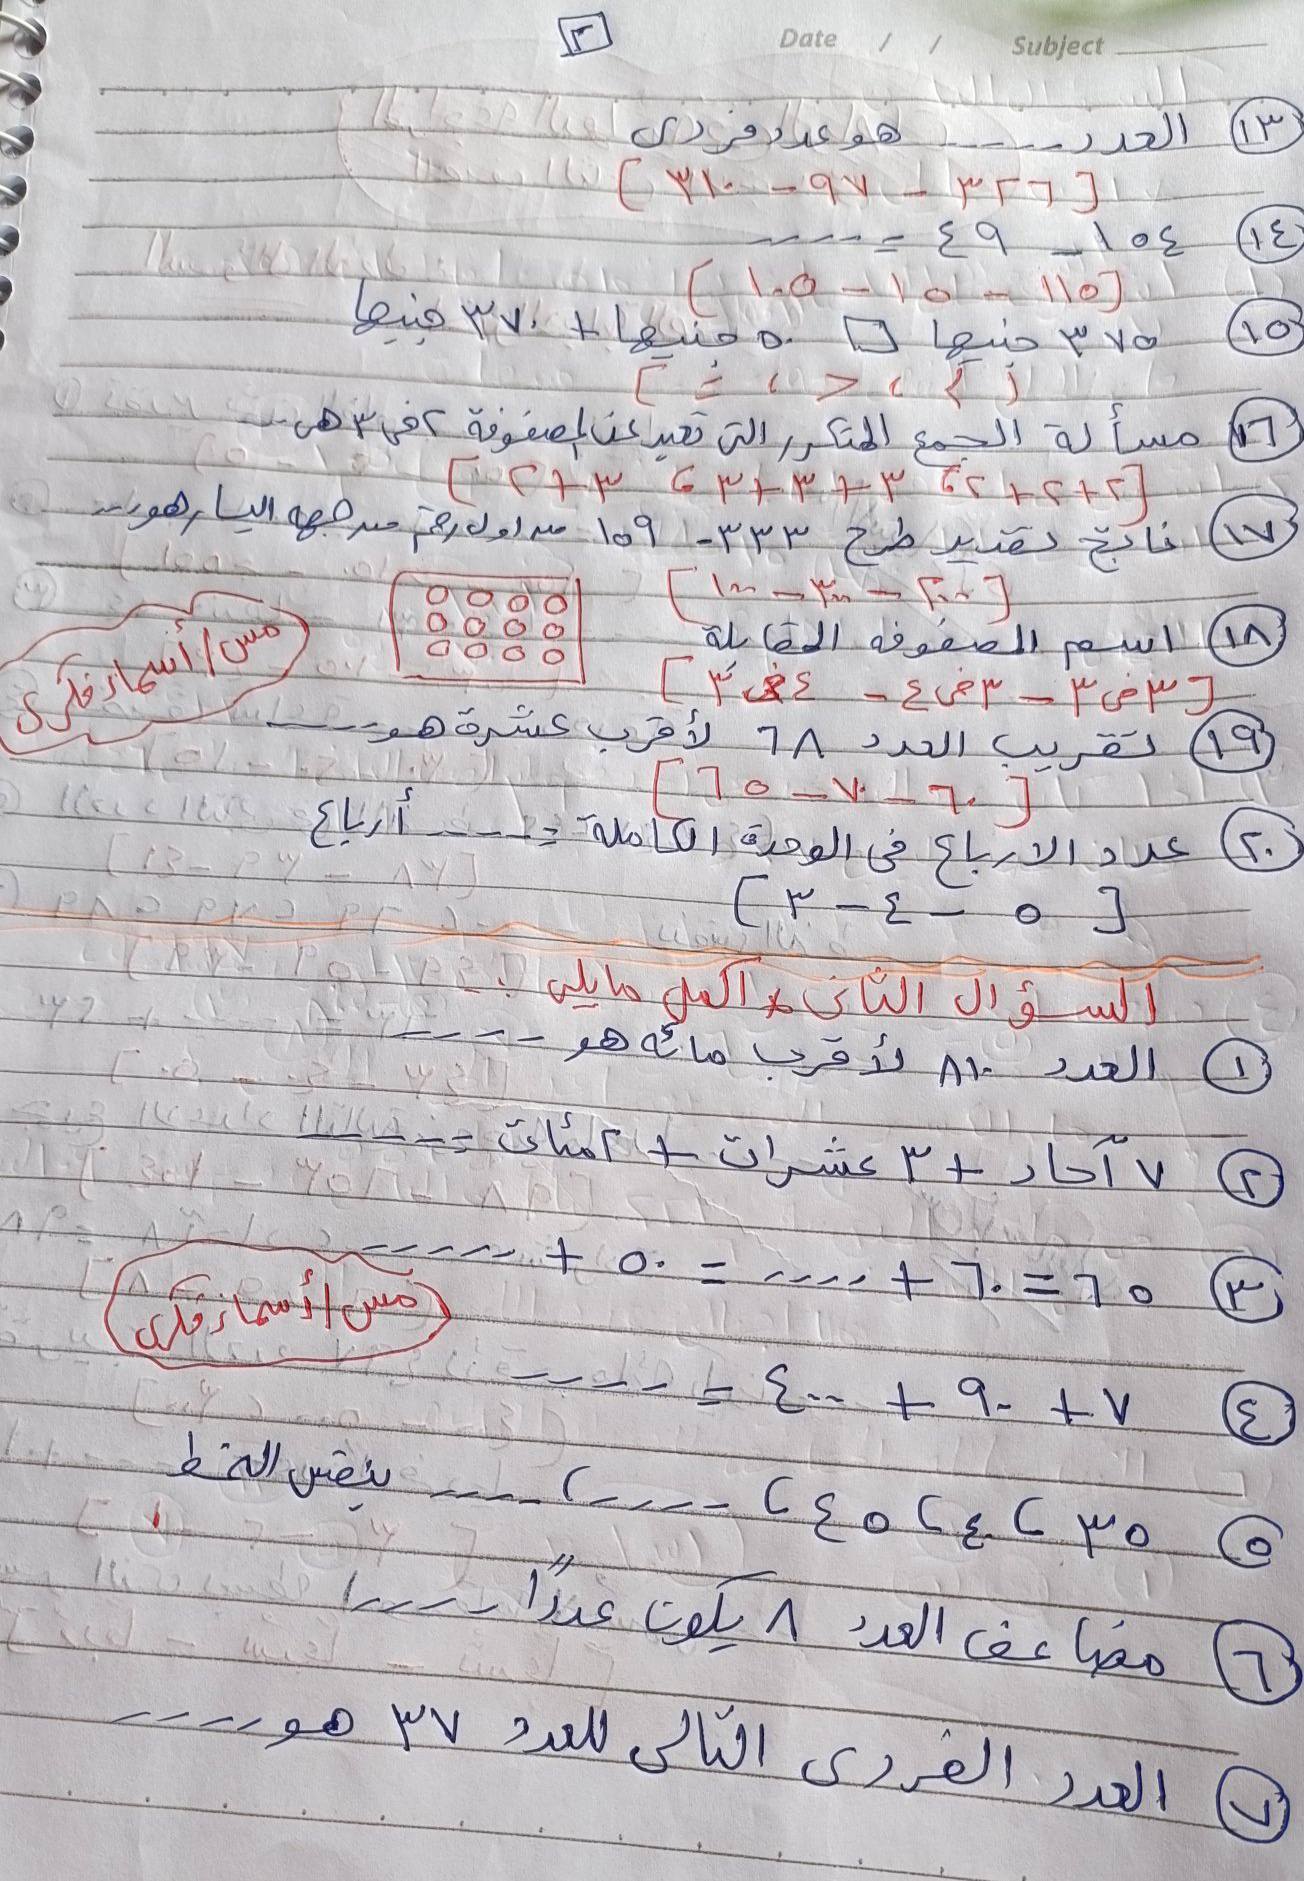 ٢
Date / / Subject
١٣ العدد ----- هو عدد فردى
[ ٣٢٦ - ٩٧ - ٣١٠ ]
١٤ ١٥٤ - ٤٩ = -----
[ ١١٥ - ١٥ - ١٠٥ ]
١٥ ٣٧٥ جنيها □ ٥٠ جنيها + ٣٧٠ جنيها
[ > ، < ، = ]
١٦ مسألة الجمع المتكرر التى تعبر عن المصفوفة ٢ فى ٣ هى ---
[ ٢+٢+٢ ، ٣+٣+٣ ، ٣+٢ ]
١٧ ناتج تقدير طرح ٣٣٣ - ١٥٩ من اول رقم من جهه اليسار هو ---
[ ٢٠٠ - ٣٠٠ - ١٠٠ ]
١٨ اسم المصفوفه المقابلة
[ ٣ فى ٣ - ٣ فى ٤ - ٤ فى ٣ ]
مس/أسماء فكرى
١٩ تقريب العدد ٦٨ لأقرب عشرة هو -----
[ ٦٠ - ٧٠ - ٦٥ ]
٢٠ عدد الارباع فى الوحدة الكاملة = ----- أرباع
[ ٥ - ٤ - ٣ ]
السؤال الثانى * أكمل مايلى :
١ العدد ٨١٠ لأقرب مائه هو -----
٢ ٧ آحاد + ٣ عشرات + ٢ مئات = -----
٣ ٦٥ = ٦٠ + ---- = ٥٠ + -----
مس/أسماء فكرى
٤ ٧ + ٩٠ + ٤٠٠ = -----
٥ ٣٥ ، ٤٠ ، ٤٥ ، ----- ، ----- بنفس النمط
٦ مضاعف العدد ٨ يكون عددًا -----
٧ العدد الفردى التالى للعدد ٣٧ هو -----